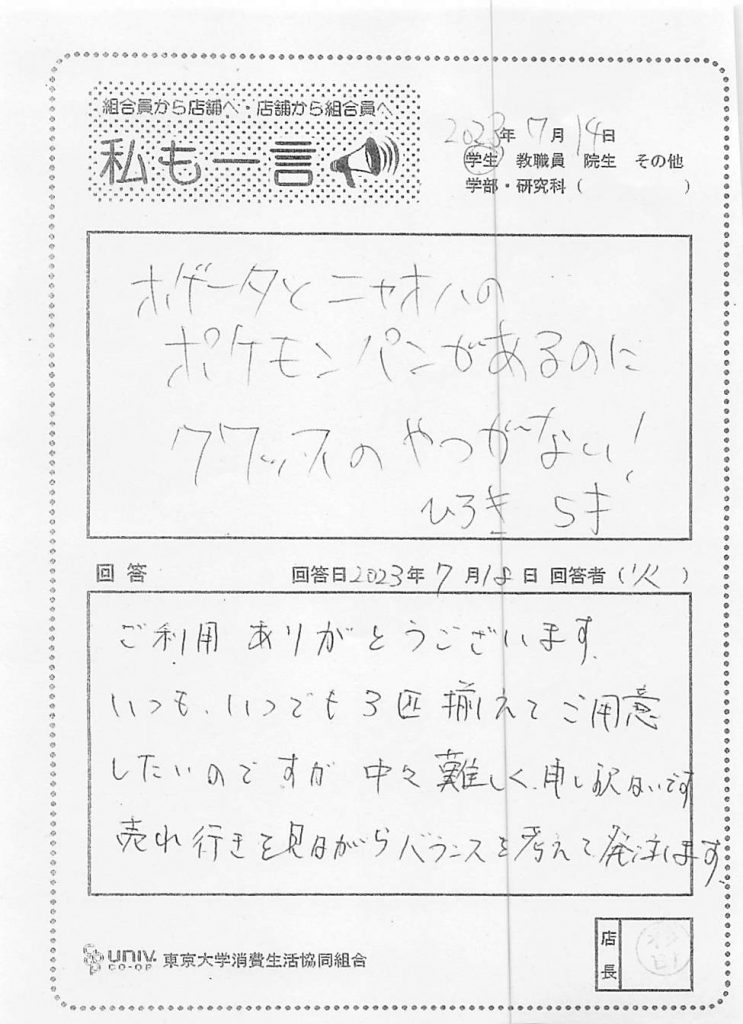 組合員から店舗へ・店舗から組合員へ
私も一言
2023年 7月 14日
学生 教職員 院生 その他
学部・研究科（　　　　　）
ホゲータと ニャオハの
ポケモンパンがあるのに
クワッスの やつがない！
ひろき 5才
回答 回答日2023年 7月18日 回答者（火）
ご利用 ありがとうございます。
いつも、いつでも3匹揃えてご用意
したいのですが 中々難しく、申し訳ないです
売れ行きを見ながらバランスを考えて発注します。
univ. CO-OP 東京大学消費生活協同組合
店長